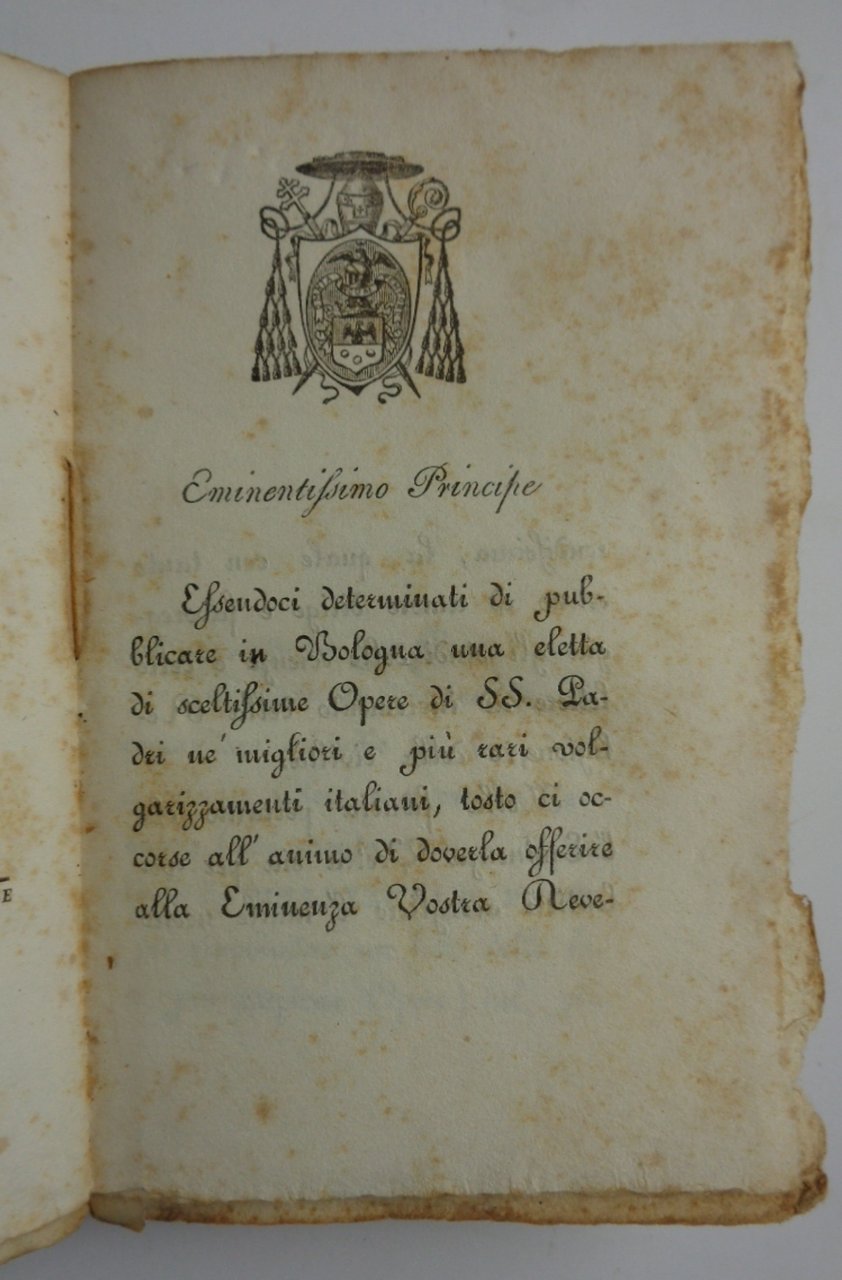 Eminentissimo Principe
Essendoci determinati di pub-
blicare in Bologna una eletta
di sceltissime Opere di SS. Pa-
dri ne' migliori e più rari vol-
garizzamenti italiani, tosto ci oc-
corse all' animo di doverla offerire
alla Eminenza Vostra Reve-
E